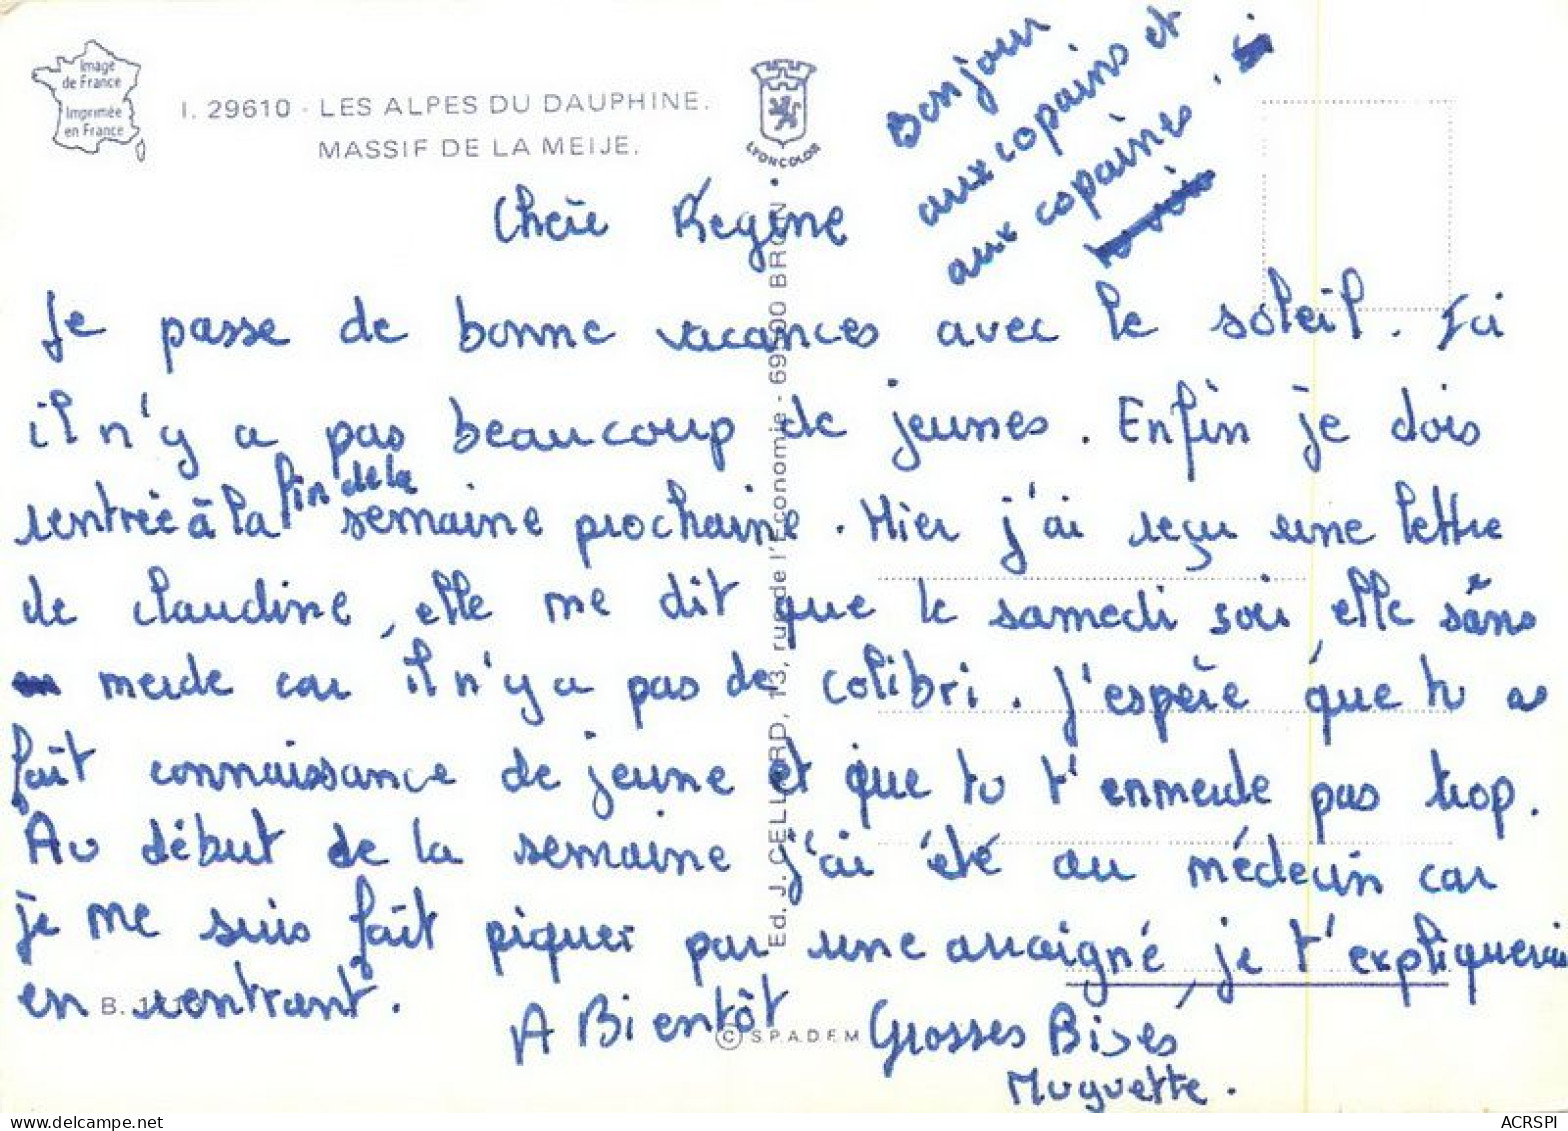 Image
de France
Imprimée
en France
I. 29610 - LES ALPES DU DAUPHINE.
MASSIF DE LA MEIJE.
LYONCOLOR
Bonjour
aux copains et
aux copaines.
Chèie Regine
Je passe de bonne vacances avec le soleil. Ici
il n'y a pas beaucoup de jeunes. Enfin je dois
rentrée à la fin de la semaine prochaine. Hier j'ai reçu une lettre
de claudine, elle me dit que le samedi soir, elle sans
merde car il n'y a pas de colibri. J'espère que tu as
fait connaissance de jeune et que tu t'enmerde pas trop.
Au début de la semaine j'ai été au médecin car
je me suis fait piquer par une araigné, je t'expliquerais
en rentrant.
A Bientôt Grosses Bises
Muguette.
Ed. J. CELLARD, 13, rue de l'Economie - 69500 BRON
© S.P.A.D.E.M
ACRSPI